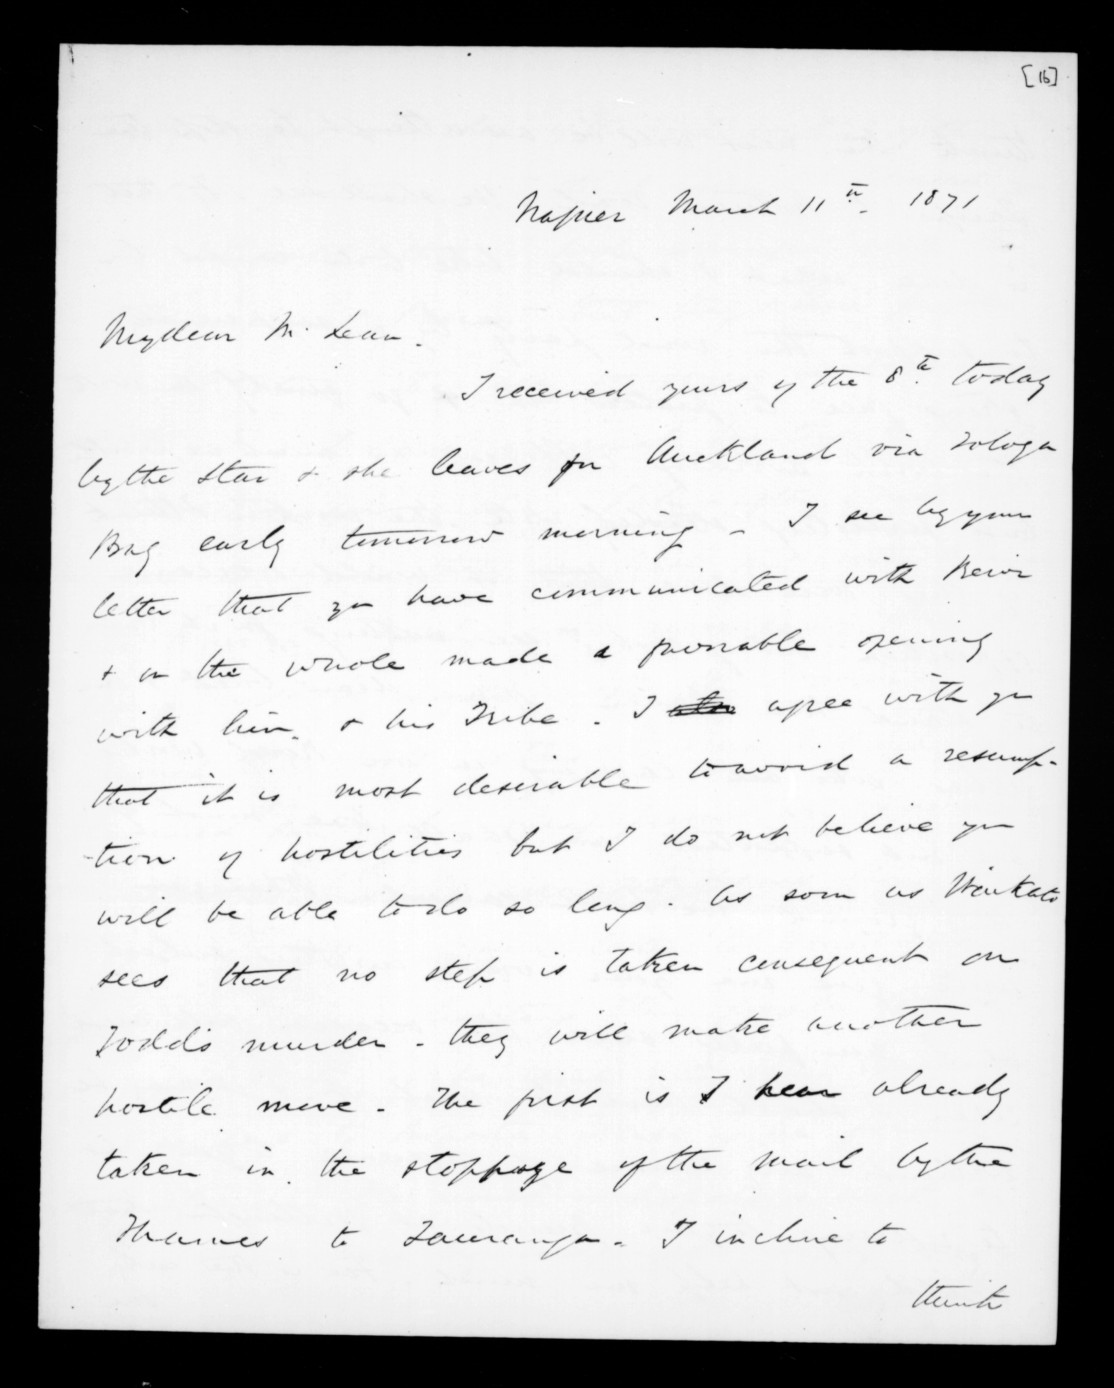 [16]
Napier March 11th. 1871
My dear McLean.
I received yours of the 8th. today
by the Star & she leaves for Auckland via Tologa
Bay early tomorrow morning - I see by your
letter that you have communicated with Rewi
& on the whole made a favorable opening
with him. & his Tribe. I agree with you
that it is most desirable to avoid a resump-
-tion of hostilities but I do not believe you
will be able to do so long. As soon as Waikato
sees that no step is taken consequent on
Todd's murder - they will make another
hostile move - The first is I hear already
taken in the stoppage of the mail by the
Thames to Tauranga - I incline to
think